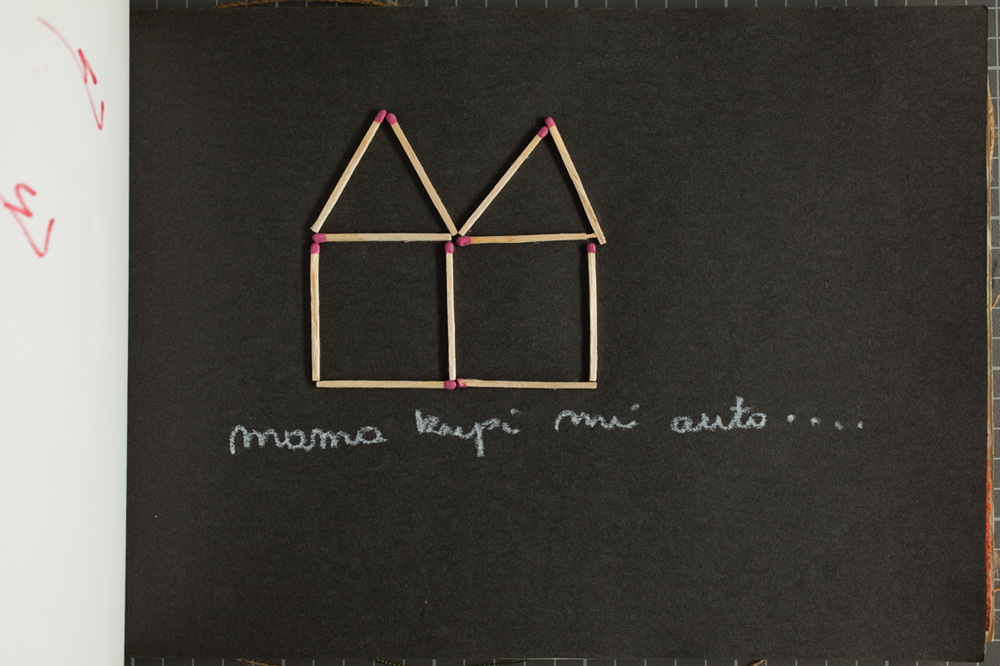 mama kupi mi auto.....